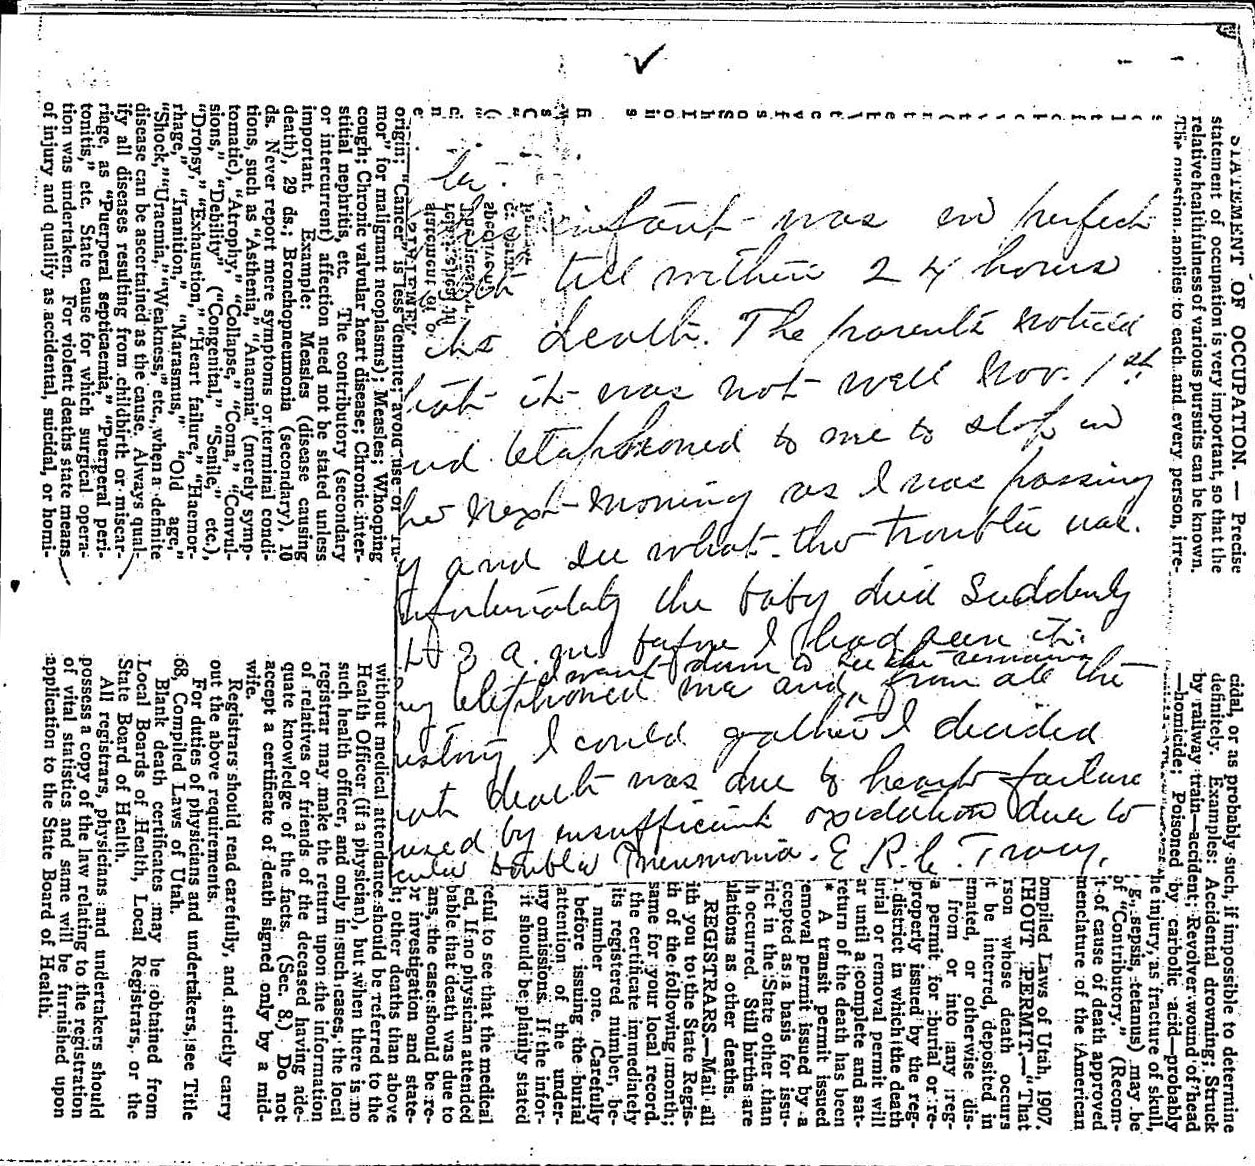 infant was in perfect
till within 24 hours
its death. The parents noticed
that it was not well Nov. 1st
and telephoned to me to stop in
the next morning as I was passing
by and see what the trouble was.
Unfortunately the baby died suddenly
at 3 a.m. before I had seen it.
I went down to see the remains
They telephoned me and, from all the
history I could gather I decided
that death was due to heart failure
caused by insufficient oxidation due to
double Pneumonia. E.R.C. Tracy.
STATEMENT OF OCCUPATION. — Precise
statement of occupation is very important, so that the
relative healthfulness of various pursuits can be known.
The question applies to each and every person, irre-
origin; "Cancer" is less definite; avoid use of "Tu-
mor" for malignant neoplasms); Measles; Whooping
cough; Chronic valvular heart disease; Chronic inter-
stitial nephritis, etc. The contributory (secondary
or intercurrent) affection need not be stated unless
important. Example: Measles (disease causing
death), 29 ds.; Bronchopneumonia (secondary), 10
ds. Never report mere symptoms or terminal condi-
tions, such as "Asthenia," "Anaemia" (merely symp-
tomatic), "Atrophy," "Collapse," "Coma," "Convul-
sions," "Debility" ("Congenital," "Senile," etc.),
"Dropsy," "Exhaustion," "Heart failure," "Haemor-
rhage," "Inanition," "Marasmus," "Old age,"
"Shock," "Uraemia," "Weakness," etc., when a definite
disease can be ascertained as the cause. Always qual-
ify all diseases resulting from childbirth or miscar-
riage, as "Puerperal septicaemia," "Puerperal peri-
tonitis," etc. State cause for which surgical opera-
tion was undertaken. For violent deaths state means
of injury and qualify as accidental, suicidal, or homi-
cidal, or as probably such, if impossible to determine
definitely. Examples: Accidental drowning; Struck
by railway train—accident; Revolver wound of head
—homicide; Poisoned by carbolic acid—probably
the injury, as fracture of skull,
g., sepsis, tetanus) may be
of "Contributory." (Recom-
it of cause of death approved
menclature of the American
ompiled Laws of Utah, 1907.
THOUT PERMIT.—"That
rson whose death occurs
t be interred, deposited in
emated, or otherwise dis-
from or into any reg-
a permit for burial or re-
properly issued by the reg-
district in which the death
urial or removal permit will
ar until a complete and sat-
return of the death has been
* A transit permit issued
removal permit issued by a
ccepted as a basis for issu-
rict in the State other than
h occurred. Still births are
lations as other deaths.
REGISTRARS.—Mail all
ith you to the State Regis-
th of the following month;
same for your local record.
the certificate immediately
its registered number, be-
number one. Carefully
before issuing the burial
attention of the under-
ny omissions. If the infor-
it should be plainly stated
reful to see that the medical
ed. If no physician attended
bable that death was due to
ans, the case should be re-
or investigation and state-
h; other deaths than above
without medical attendance should be referred to the
Health Officer (if a physician), but when there is no
such health officer, and only in such cases, the local
registrar may make the return upon the information
of relatives or friends of the deceased having ade-
quate knowledge of the facts. (Sec. 8.) Do not
accept a certificate of death signed only by a mid-
wife.
Registrars should read carefully, and strictly carry
out the above requirements.
For duties of physicians and undertakers, see Title
68, Compiled Laws of Utah.
Blank death certificates may be obtained from
Local Boards of Health, Local Registrars, or the
State Board of Health.
All registrars, physicians and undertakers should
possess a copy of the law relating to the registration
of vital statistics and same will be furnished upon
application to the State Board of Health.